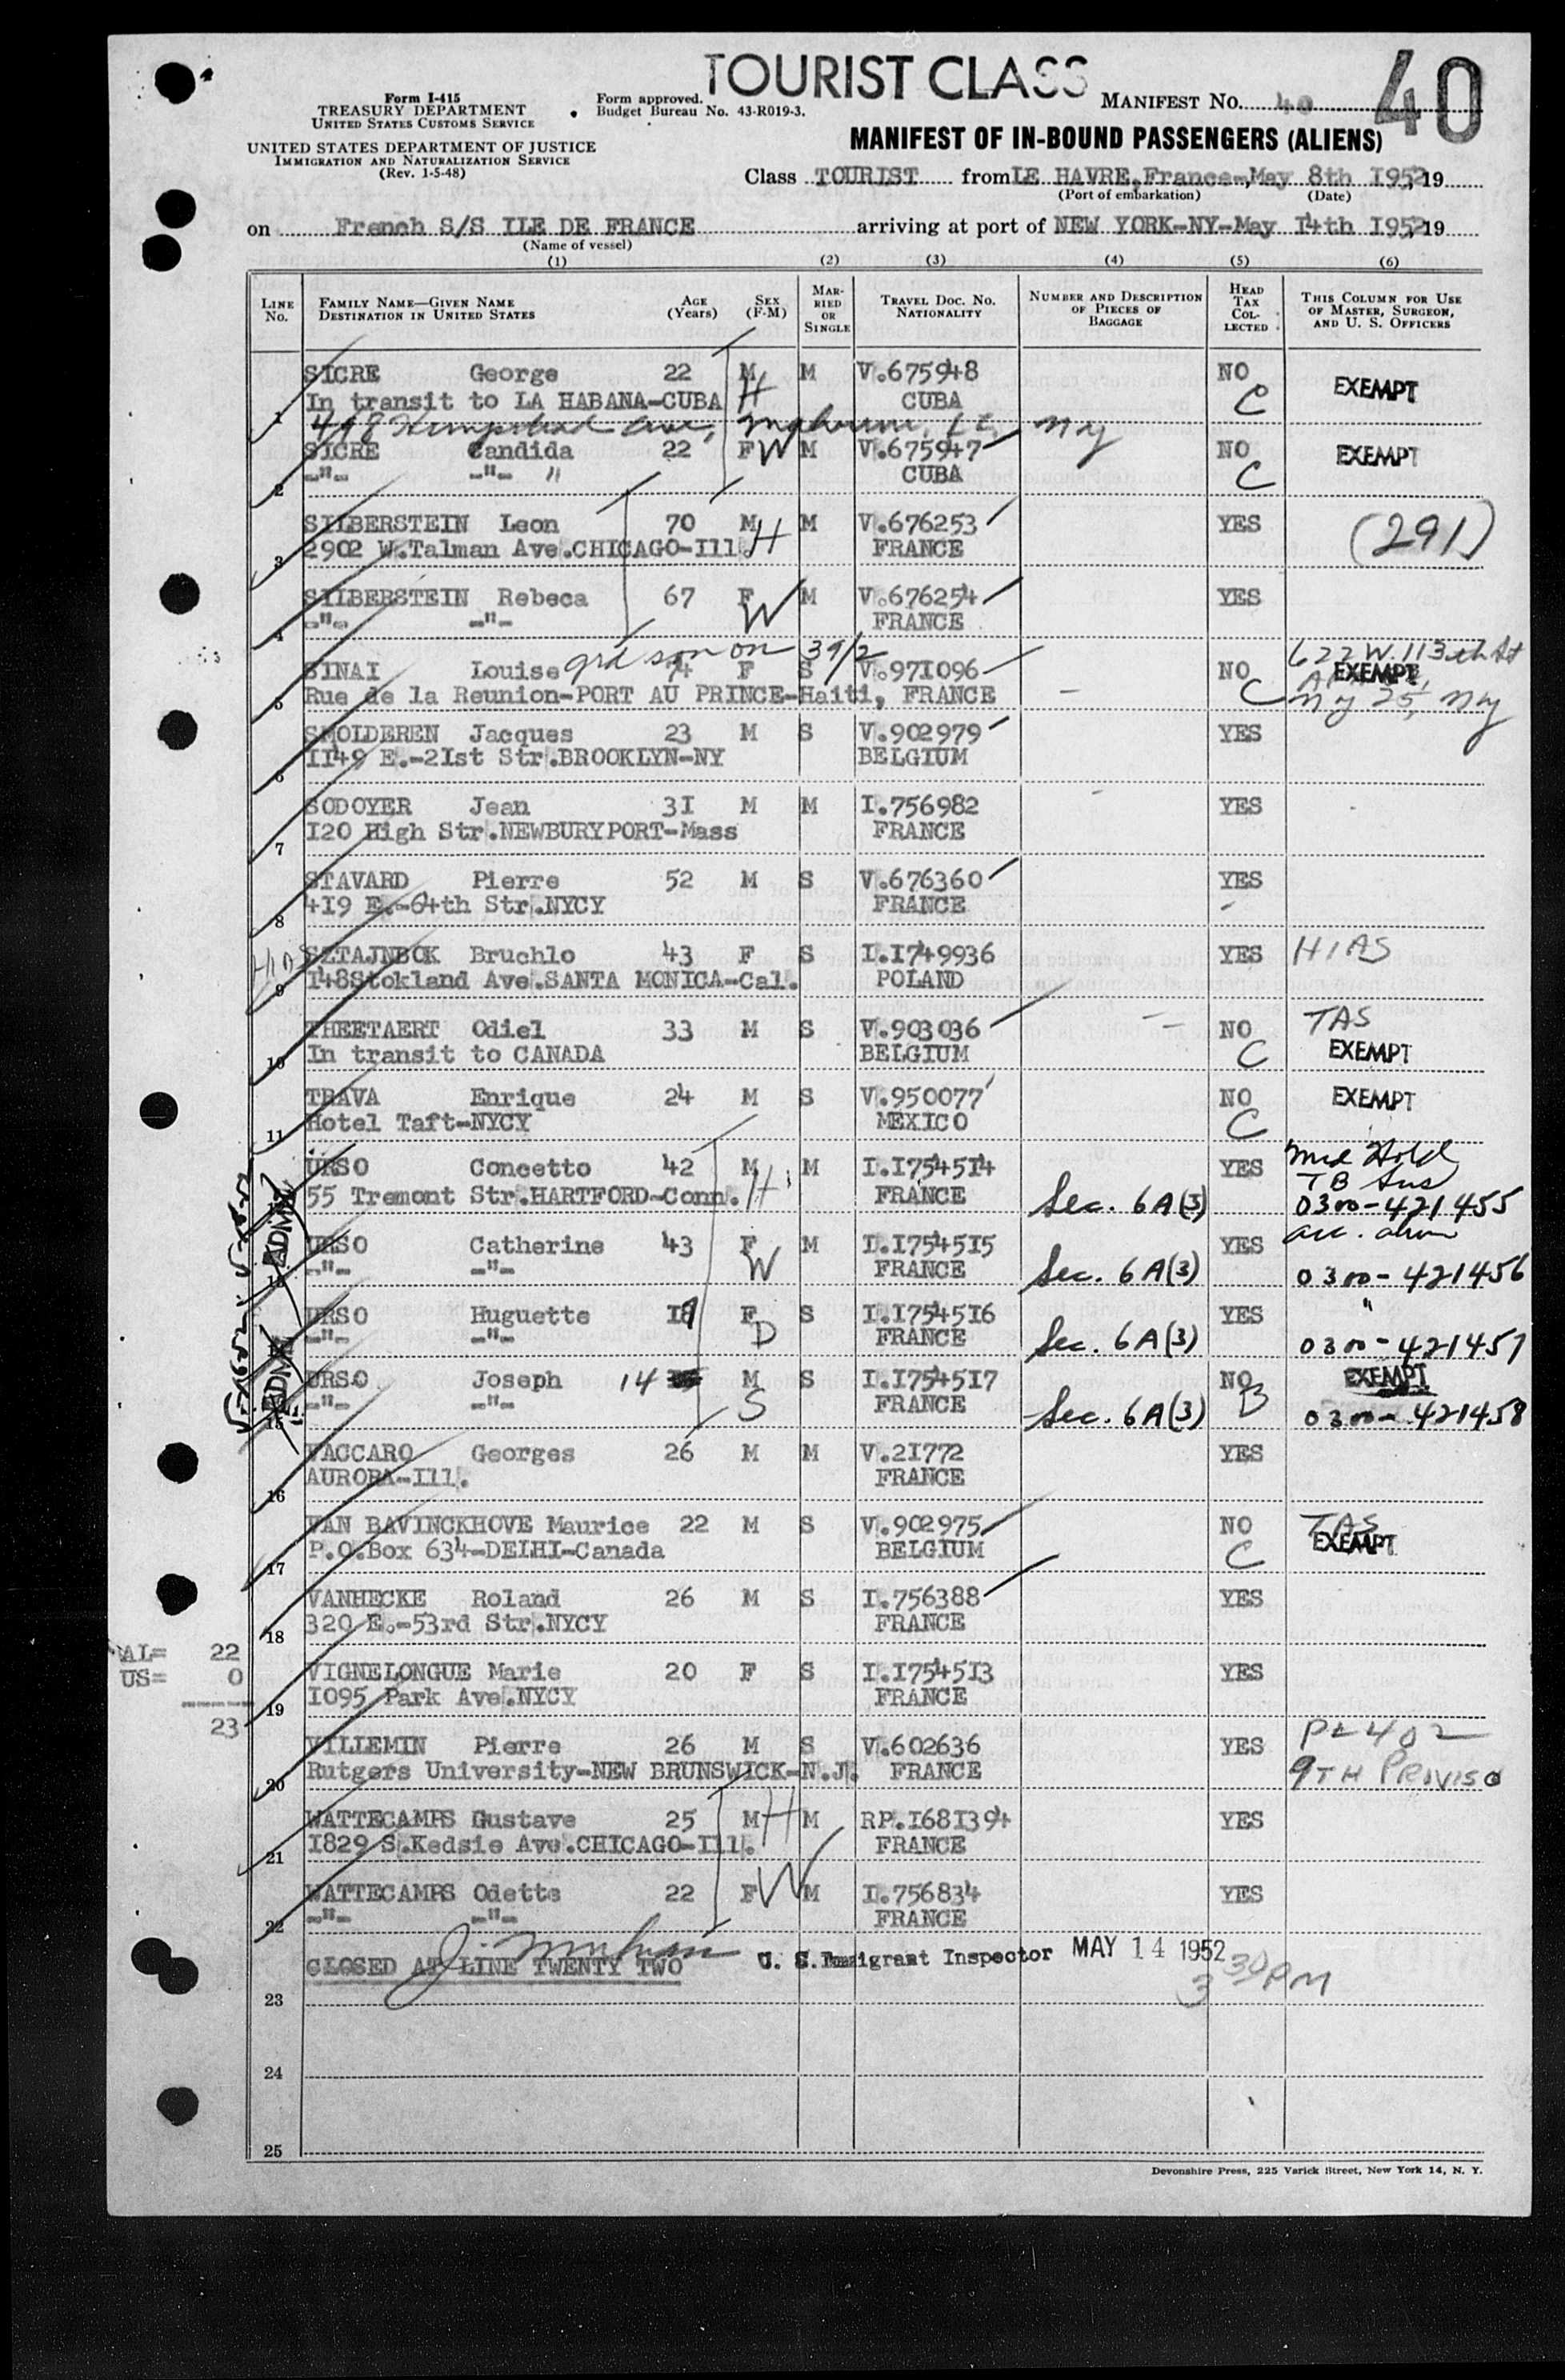 TOURIST CLASS
40
Form I-415
TREASURY DEPARTMENT
UNITED STATES CUSTOMS SERVICE
UNITED STATES DEPARTMENT OF JUSTICE
IMMIGRATION AND NATURALIZATION SERVICE
(Rev. 1-5-48)
Form approved.
Budget Bureau No. 43-R019-3.
MANIFEST NO. 40
MANIFEST OF IN-BOUND PASSENGERS (ALIENS)
Class TOURIST from LE HAVRE, France-, May 8th 1952, 19
(Port of embarkation) (Date)
on French S/S ILE DE FRANCE arriving at port of NEW YORK-NY-May 14th 1952, 19
(Name of vessel)
(1) (2) (3) (4) (5) (6)
LINE NO. FAMILY NAME—GIVEN NAME DESTINATION IN UNITED STATES AGE (Years) SEX (F-M) MARRIED OR SINGLE TRAVEL DOC. NO. NATIONALITY NUMBER AND DESCRIPTION OF PIECES OF BAGGAGE HEAD TAX COLLECTED THIS COLUMN FOR USE OF MASTER, SURGEON, AND U. S. OFFICERS
SICRE George 22 M M V.675948 NO EXEMPT
1 In transit to LA HABANA-CUBA H CUBA C
498 Hempstead Ave, Malverne, L.I., NY
SICRE Candida 22 F W M V.675947 NO EXEMPT
2 -"- -"- " CUBA C
SILBERSTEIN Leon 70 M M V.676253 YES (291)
3 2902 W.Talman Ave.CHICAGO-Ill. H FRANCE
SILBERSTEIN Rebeca 67 F M V.676254 YES
4 -"- -"- W FRANCE
grd son on 39/2 622 W. 113th St
SINAI Louise 74 F S V.971096 NO EXEMPT
5 Rue de la Reunion-PORT AU PRINCE-Haiti, FRANCE C NY 25, NY
SMOLDEREN Jacques 23 M S V.902979 YES
6 1149 E.-21st Str.BROOKLYN-NY BELGIUM
SODOYER Jean 31 M M I.756982 YES
7 120 High Str.NEWBURYPORT-Mass FRANCE
STAVARD Pierre 52 M S V.676360 YES
8 419 E.-64th Str.NYCY FRANCE
HIAS SZTAJNBOK Bruchlo 43 F S I.1749936 YES HIAS
9 148Stokland Ave.SANTA MONICA-Cal. POLAND
THEETAERT Odiel 33 M S V.903036 NO TAS
10 In transit to CANADA BELGIUM C EXEMPT
TRAVA Enrique 24 M S V.950077 NO EXEMPT
11 Hotel Taft-NYCY MEXICO C
URSO Concetto 42 M M I.1754514 YES Med Hold
55 Tremont Str.HARTFORD-Conn. H FRANCE Sec. 6A(3) TB Sus
0300-421455
URSO Catherine 43 F M I.1754515 YES acc. alien
-"- -"- W FRANCE Sec. 6A(3) 0300-421456
URSO Huguette 19 F S I.1754516 YES "
-"- -"- D FRANCE Sec. 6A(3) 0300-421457
URSO Joseph 14 M S I.1754517 NO EXEMPT
15 -"- -"- S FRANCE Sec. 6A(3) B 0300-421458
VACCARO Georges 26 M M V.21772 YES
16 AURORA-Ill. FRANCE
VAN BAVINCKHOVE Maurice 22 M S V.902975 NO TAS
17 P.O.Box 634-DELHI-Canada BELGIUM C EXEMPT
VANHECKE Roland 26 M S I.756388 YES
18 320 E.-53rd Str.NYCY FRANCE
AL= 22
US= 0
23
VIGNELONGUE Marie 20 F S I.1754513 YES
19 1095 Park Ave.NYCY FRANCE
VILLEMIN Pierre 26 M S V.602636 YES PL 402
20 Rutgers University-NEW BRUNSWICK-N.J. FRANCE 9TH PROVISO
WATTECAMPS Gustave 25 M H M RP.1681394 YES
21 1829 S.Kedsie Ave.CHICAGO-Ill. FRANCE
WATTECAMPS Odette 22 F W M I.756834 YES
22 -"- -"- FRANCE
CLOSED AT LINE TWENTY TWO U. S. Immigrant Inspector MAY 14 1952
3 30 PM
23
24
25
Devonshire Press, 225 Varick Street, New York 14, N. Y.